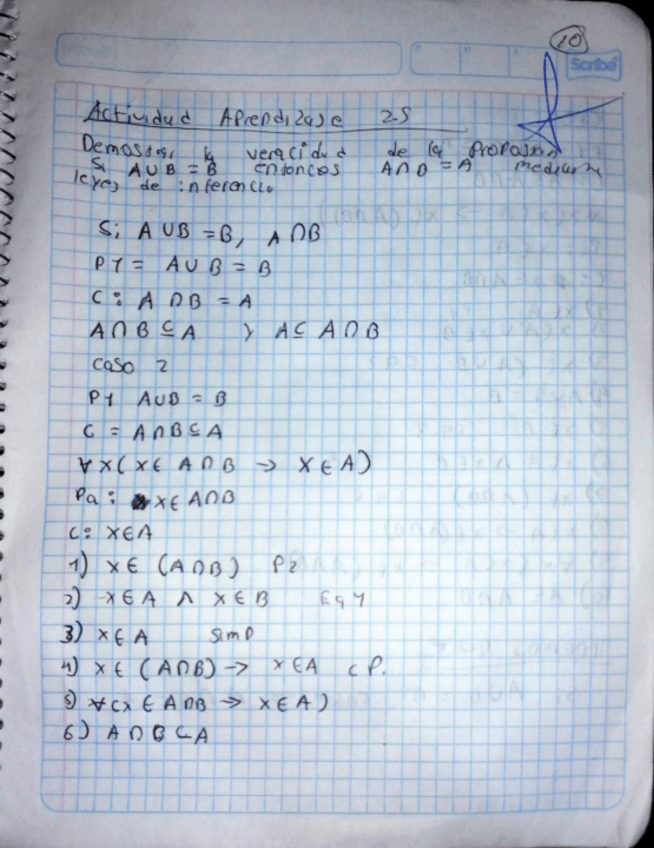 10
Scribe
Actividad Aprendizaje 2-5
Demostrar la veracidad de la proposición
Si A ∪ B = B entonces A ∩ B = A mediante
leyes de inferencia
Si A ∪ B = B, A ∩ B
P1 = A ∪ B = B
C: A ∩ B = A
A ∩ B ⊆ A y A ⊆ A ∩ B
Caso 2
P1 A∪B = B
C = A∩B ⊆ A
∀x(x∈ A ∩ B → x∈A)
Pa: x∈ A∩B
C: x∈A
1) x∈ (A∩B) P2
2) x∈A ∧ x∈B Eq 1
3) x∈A Simp
4) x∈ (A∩B) → x∈A CP.
5) ∀(x ∈ A∩B → x∈A)
6) A∩B ⊂ A